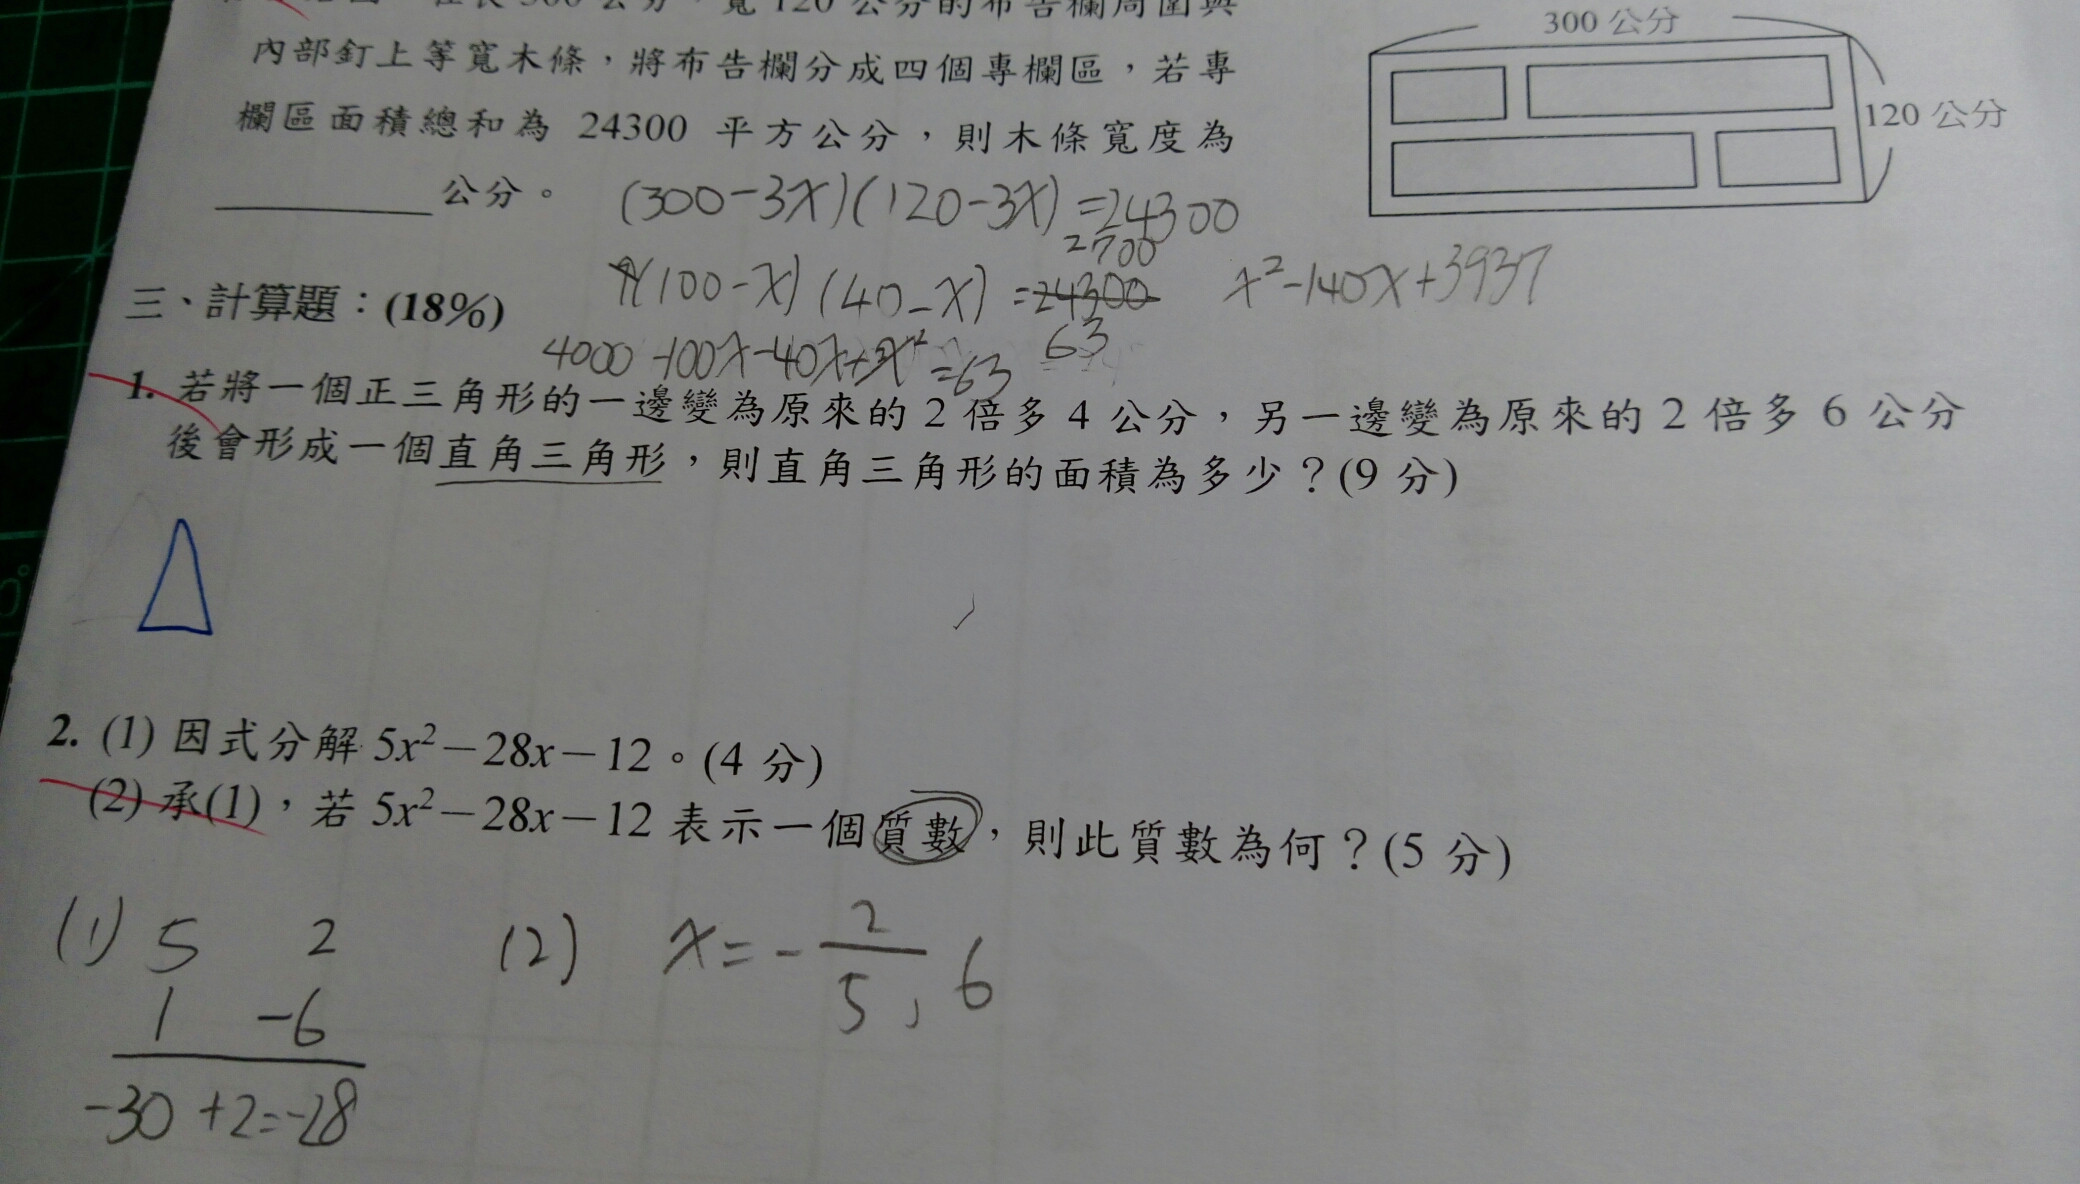 在長 300 公分,寬 120 公分的布告欄周圍與
內部釘上等寬木條,將布告欄分成四個專欄區,若專
欄區面積總和為 24300 平方公分,則木條寬度為
公分。
300 公分
120 公分
(300-3X)(120-3X)=24300
2700
(100-X)(40-X)=24300
63
x²-140x+3937
4000-100X-40X+X²=63
三、計算題:(18%)
1. 若將一個正三角形的一邊變為原來的 2 倍多 4 公分,另一邊變為原來的 2 倍多 6 公分
後會形成一個直角三角形,則直角三角形的面積為多少?(9 分)
2. (1) 因式分解 5x²-28x-12。(4 分)
(2) 承(1),若 5x²-28x-12 表示一個質數,則此質數為何?(5 分)
(1) 5 2
1 -6
-30+2=-28
(2) x=-2/5, 6